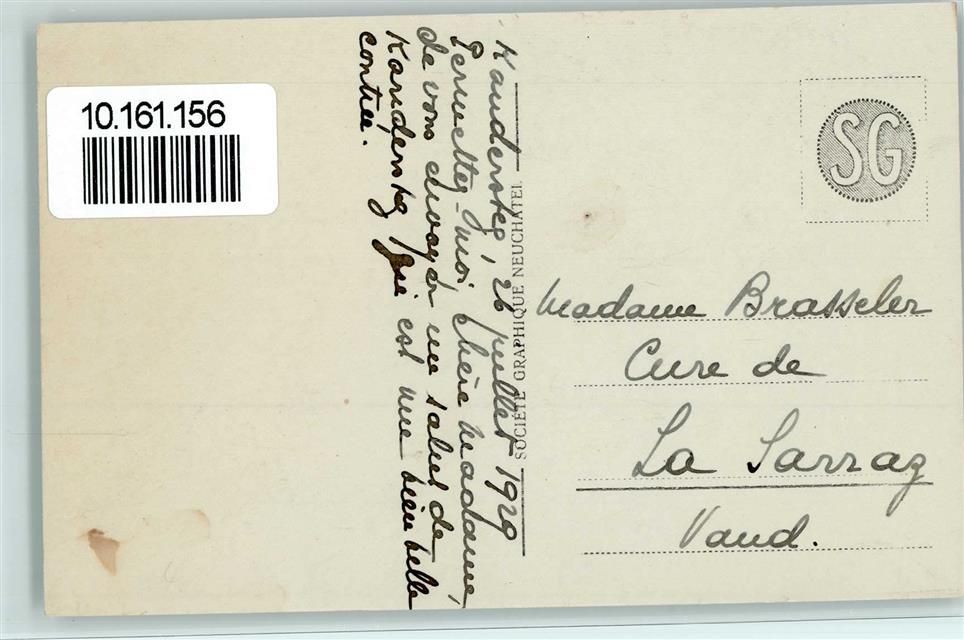 10.161.156
Kandersteg, 26 juillet 1929
Permettez-moi, chère Madame,
de vous envoyer un salut de
Kandersteg qui est une bien belle
contrée.
SOCIÉTÉ GRAPHIQUE NEUCHATEL
SG
Madame Brasseler
Cure de
La Sarraz
Vaud.